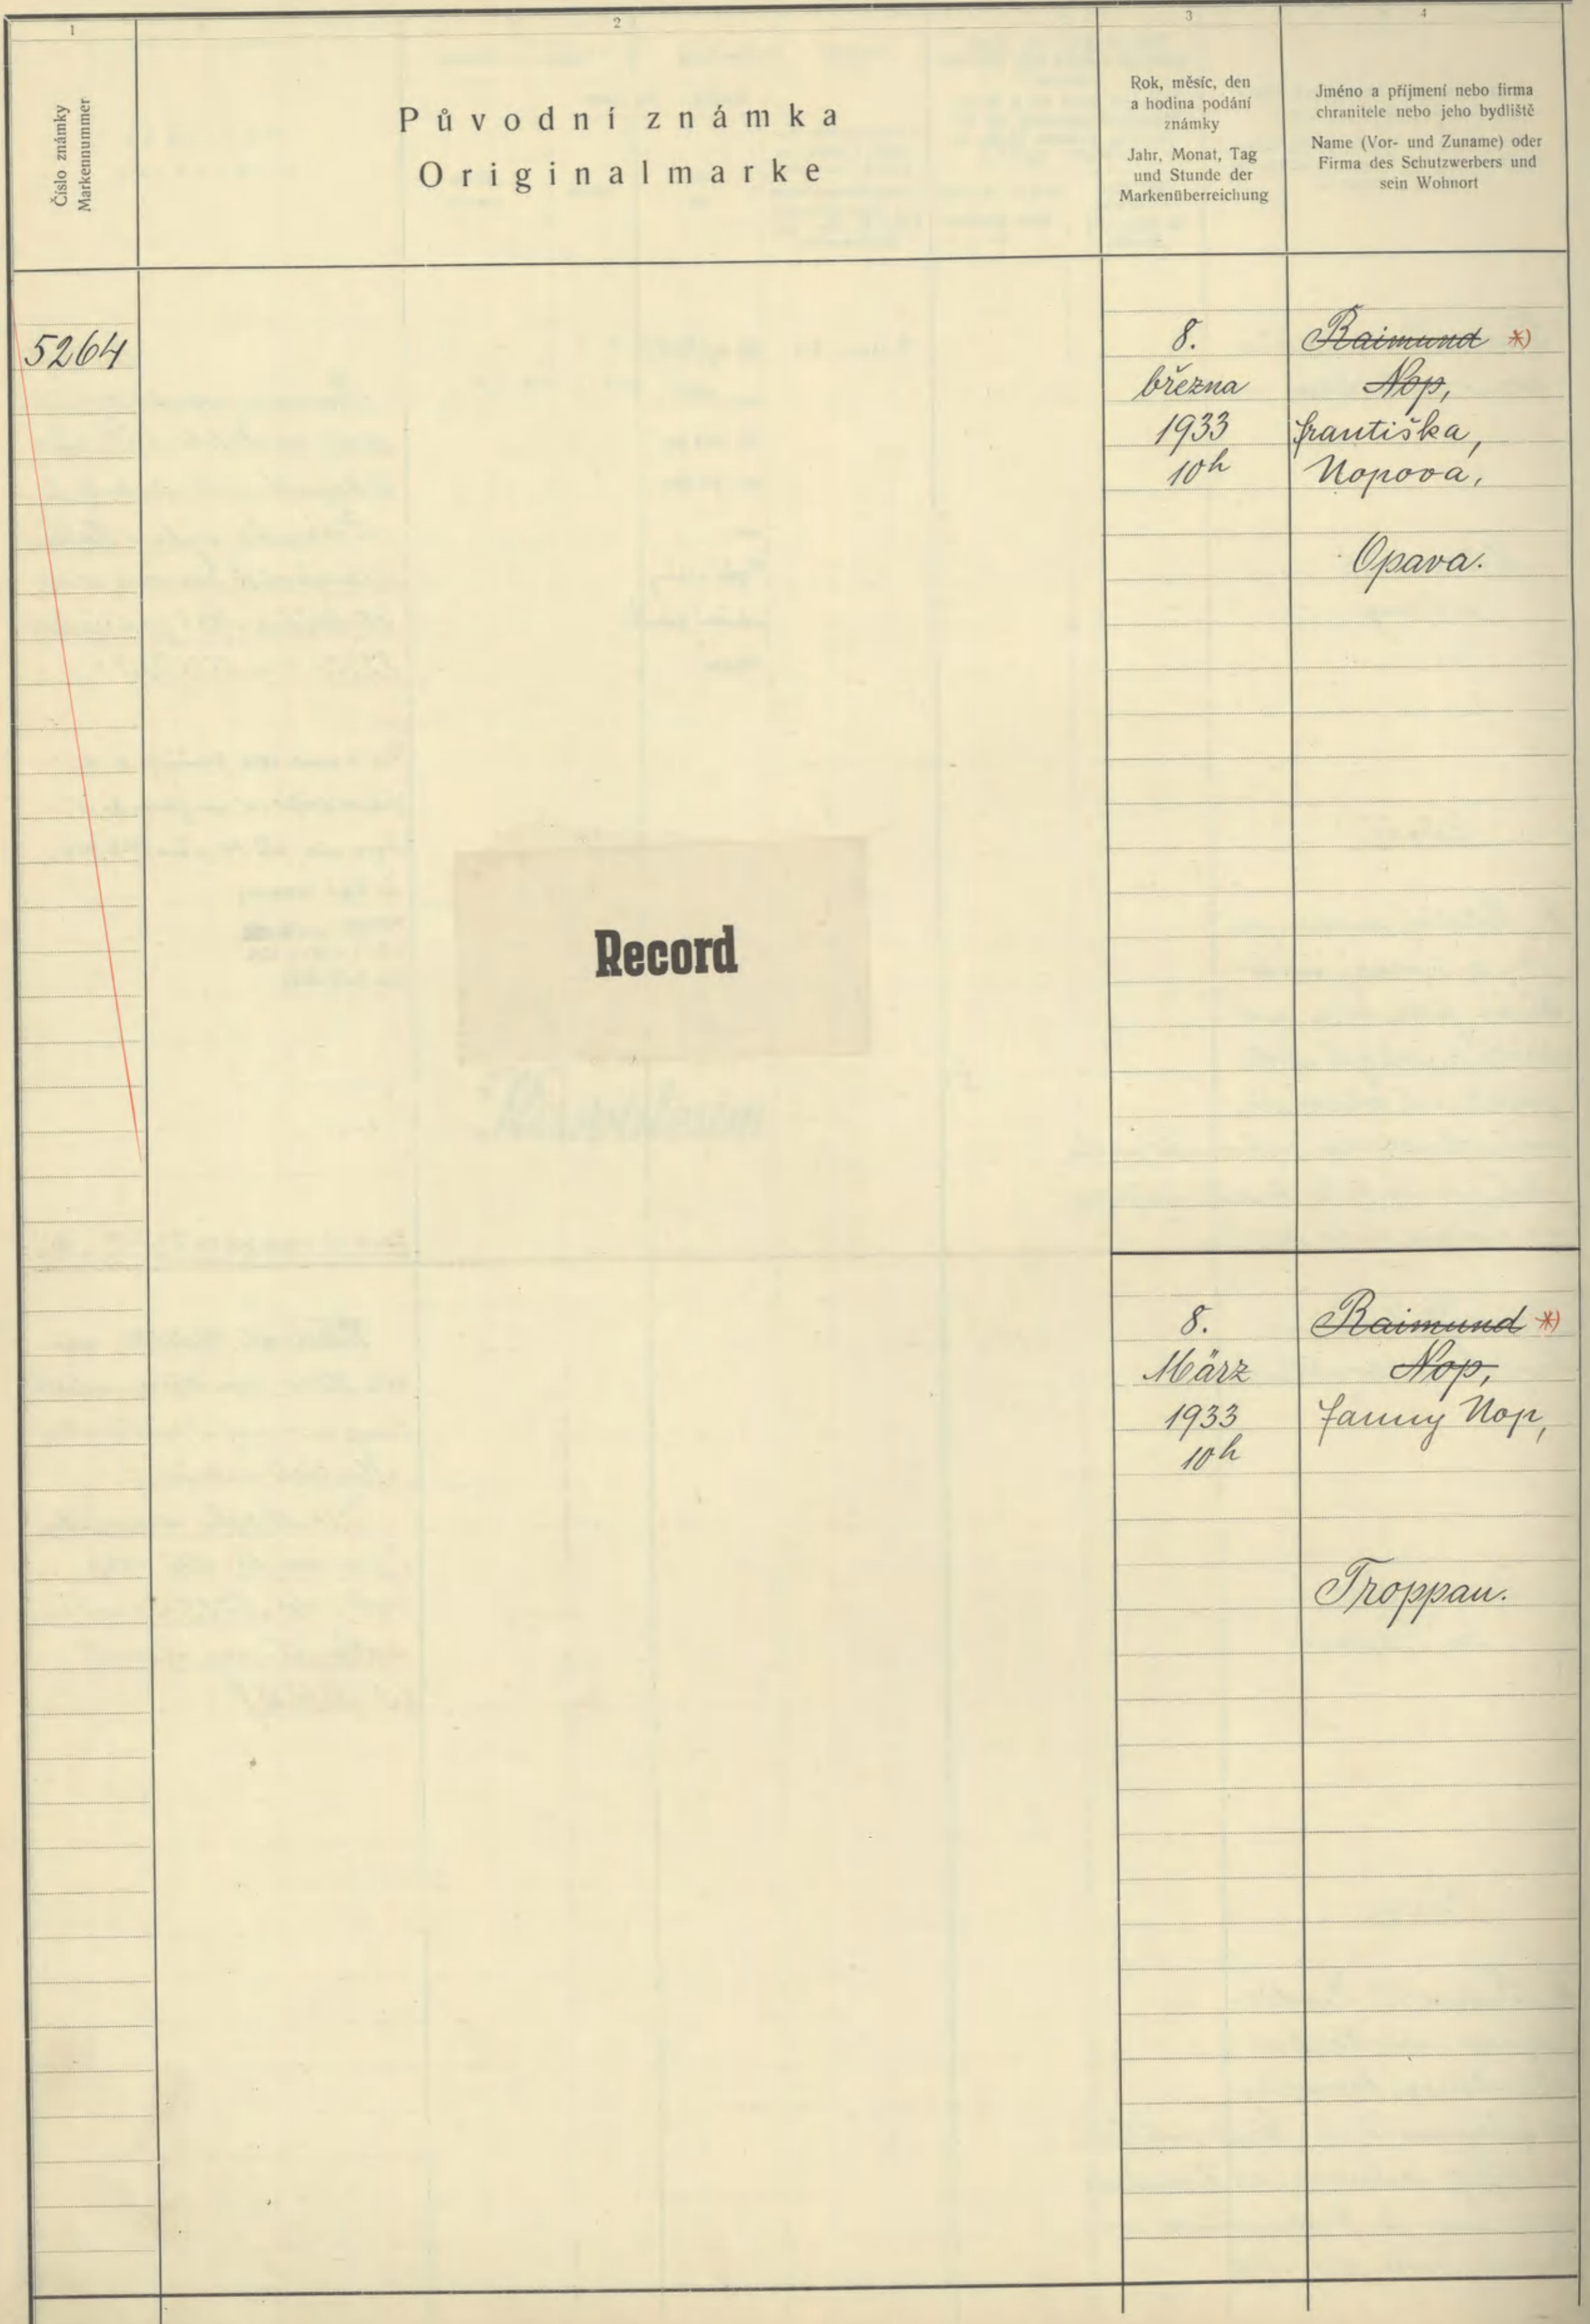 1
2
3
4
Číslo známky
Markennummer
Původní známka
Originalmarke
Rok, měsíc, den
a hodina podání
známky
Jahr, Monat, Tag
und Stunde der
Markenüberreichung
Jméno a příjmení nebo firma
chranitele nebo jeho bydliště
Name (Vor- und Zuname) oder
Firma des Schutzwerbers und
sein Wohnort
5264
8.
března
1933
10h
Raimund *)
Nop,
Františka,
Nopova,
Opava.
Record
8.
März
1933
10h
Raimund *)
Nop,
Fanny Nop,
Troppau.